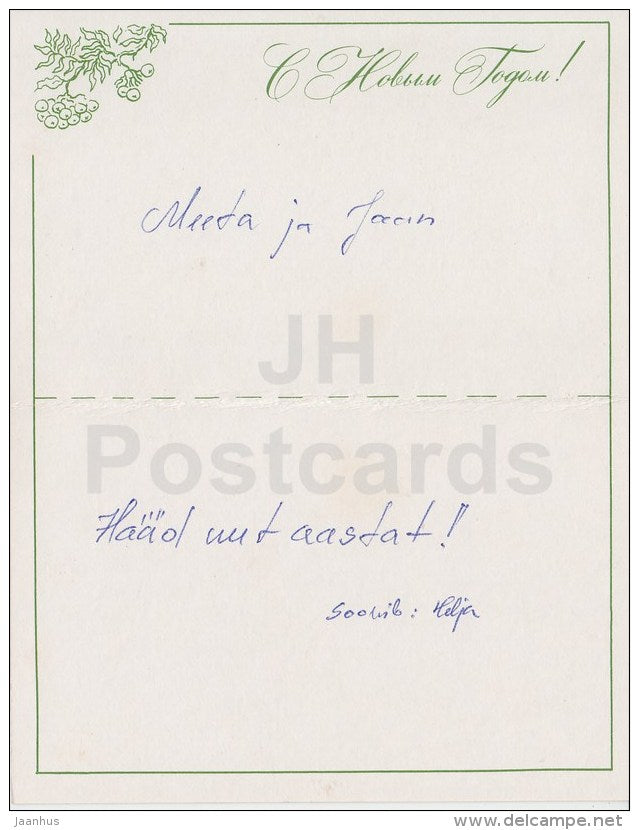 С Новым Годом!
Meeta ja Jaan
JH
Postcards
Hääd uut aastat!
Soovib: Helja
Jaanhus
www.delcampe.net